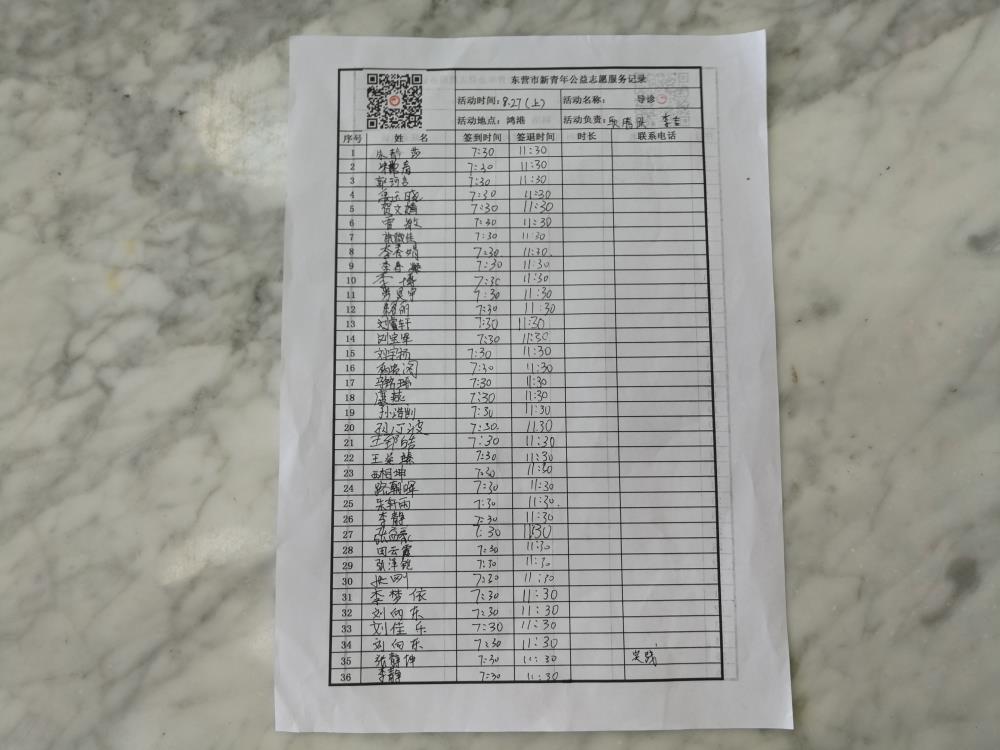 东营市新青年公益志愿服务记录
活动时间: 8.27(上) 活动名称: 导诊
活动地点: 鸿港 活动负责:
序号 姓 名 签到时间 签退时间 时长 联系电话
1 朱静莎 7:30 11:30
2 7:30 11:30
3 7:30 11:30
4 7:30 11:30
5 贺文婧 7:30 11:30
6 雪敏 7:30 11:30
7 7:30 11:30
8 李春娟 7:30 11:30.
9 李春凝 7:30 11:30
10 李博 7:30 11:30
11 7:30 11:30
12 7:30 11:30
13 刘富轩 7:30 11:30
14 7:30 11:30
15 刘宇扬 7:30 11:30
16 7:30 11:30
17 7:30 11:30
18 康燕 7:30 11:30
19 孙浩凯 7:30 11:30
20 7:30. 11:30
21 王郅皓 7:30 11:30
22 王益臻 7:30 11:30
23 7:30 11:30
24 路朝晖 7:30 11:30
25 朱轩雨 7:30 11:30.
26 李静 7:30 11:30
27 7:30 11:30
28 田云霞 7:30 11:30
29 张泽锐 7:30 11:30
30 7:30 11:30
31 李梦依 7:30 11:30
32 刘向东 7:30 11:30
33 刘佳乐 7:30 11:30
34 刘向东 7:30 11:30
35 张静坤 7:30 11:30
36 李静 7:30 11:30